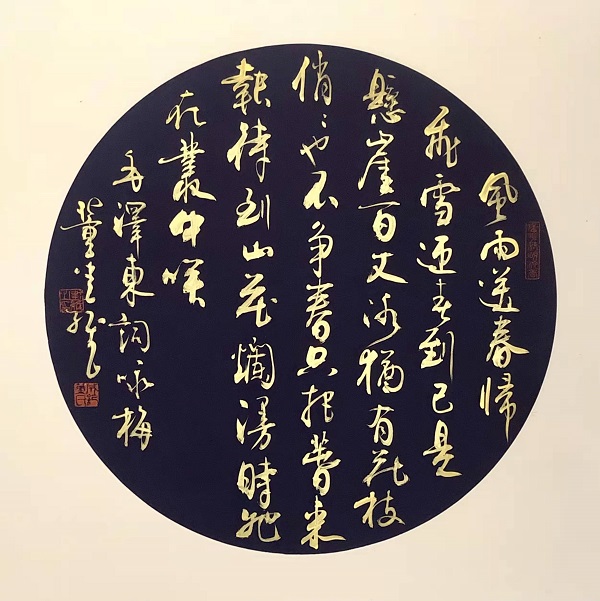 風雨送春帰
飛雪迎春到已是
懸崖百丈冰猶有花枝
俏〻也不争春只把春来
報待到山花爛漫時她
在叢中咲
毛澤東詞咏梅
董